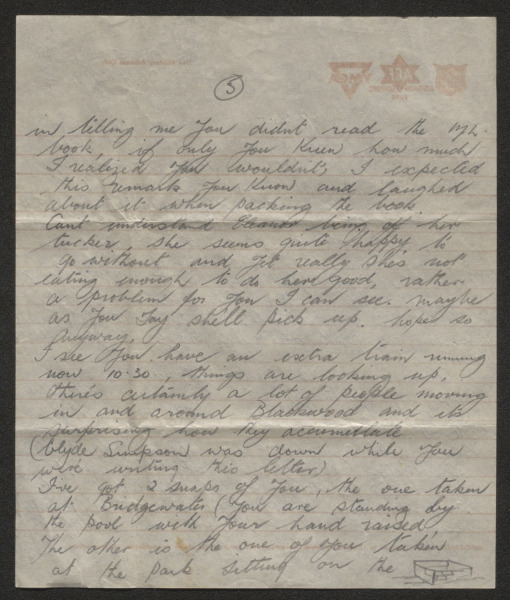 5
in telling me you didn't read the
book, if only you knew how much
I realized you wouldn't, I expected
this remark you know and laughed
about it when packing the book
Cant understand Eleanor being off her
tucker, she seems quite happy to
go without and yet really she's not
eating enough to do her good, rather
a problem for you I can see. maybe
as you say shell pick up. hope so
anyway.
I see you have an extra train running
now 10.30, things are looking up,
there's certainly a lot of people moving
in and around Blackwood and its
surprising how they
(Clyde Simpson was down while you
were writing this letter)
I've got 2 snaps of you, the one taken
at Bridgewater (you are standing by
the pool with your hand raised
The other is the one of you taken
at the park sitting on the